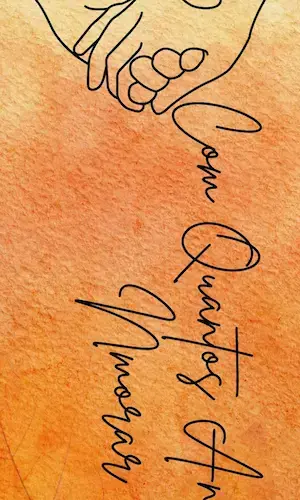 Com Quantos An
Nmorar